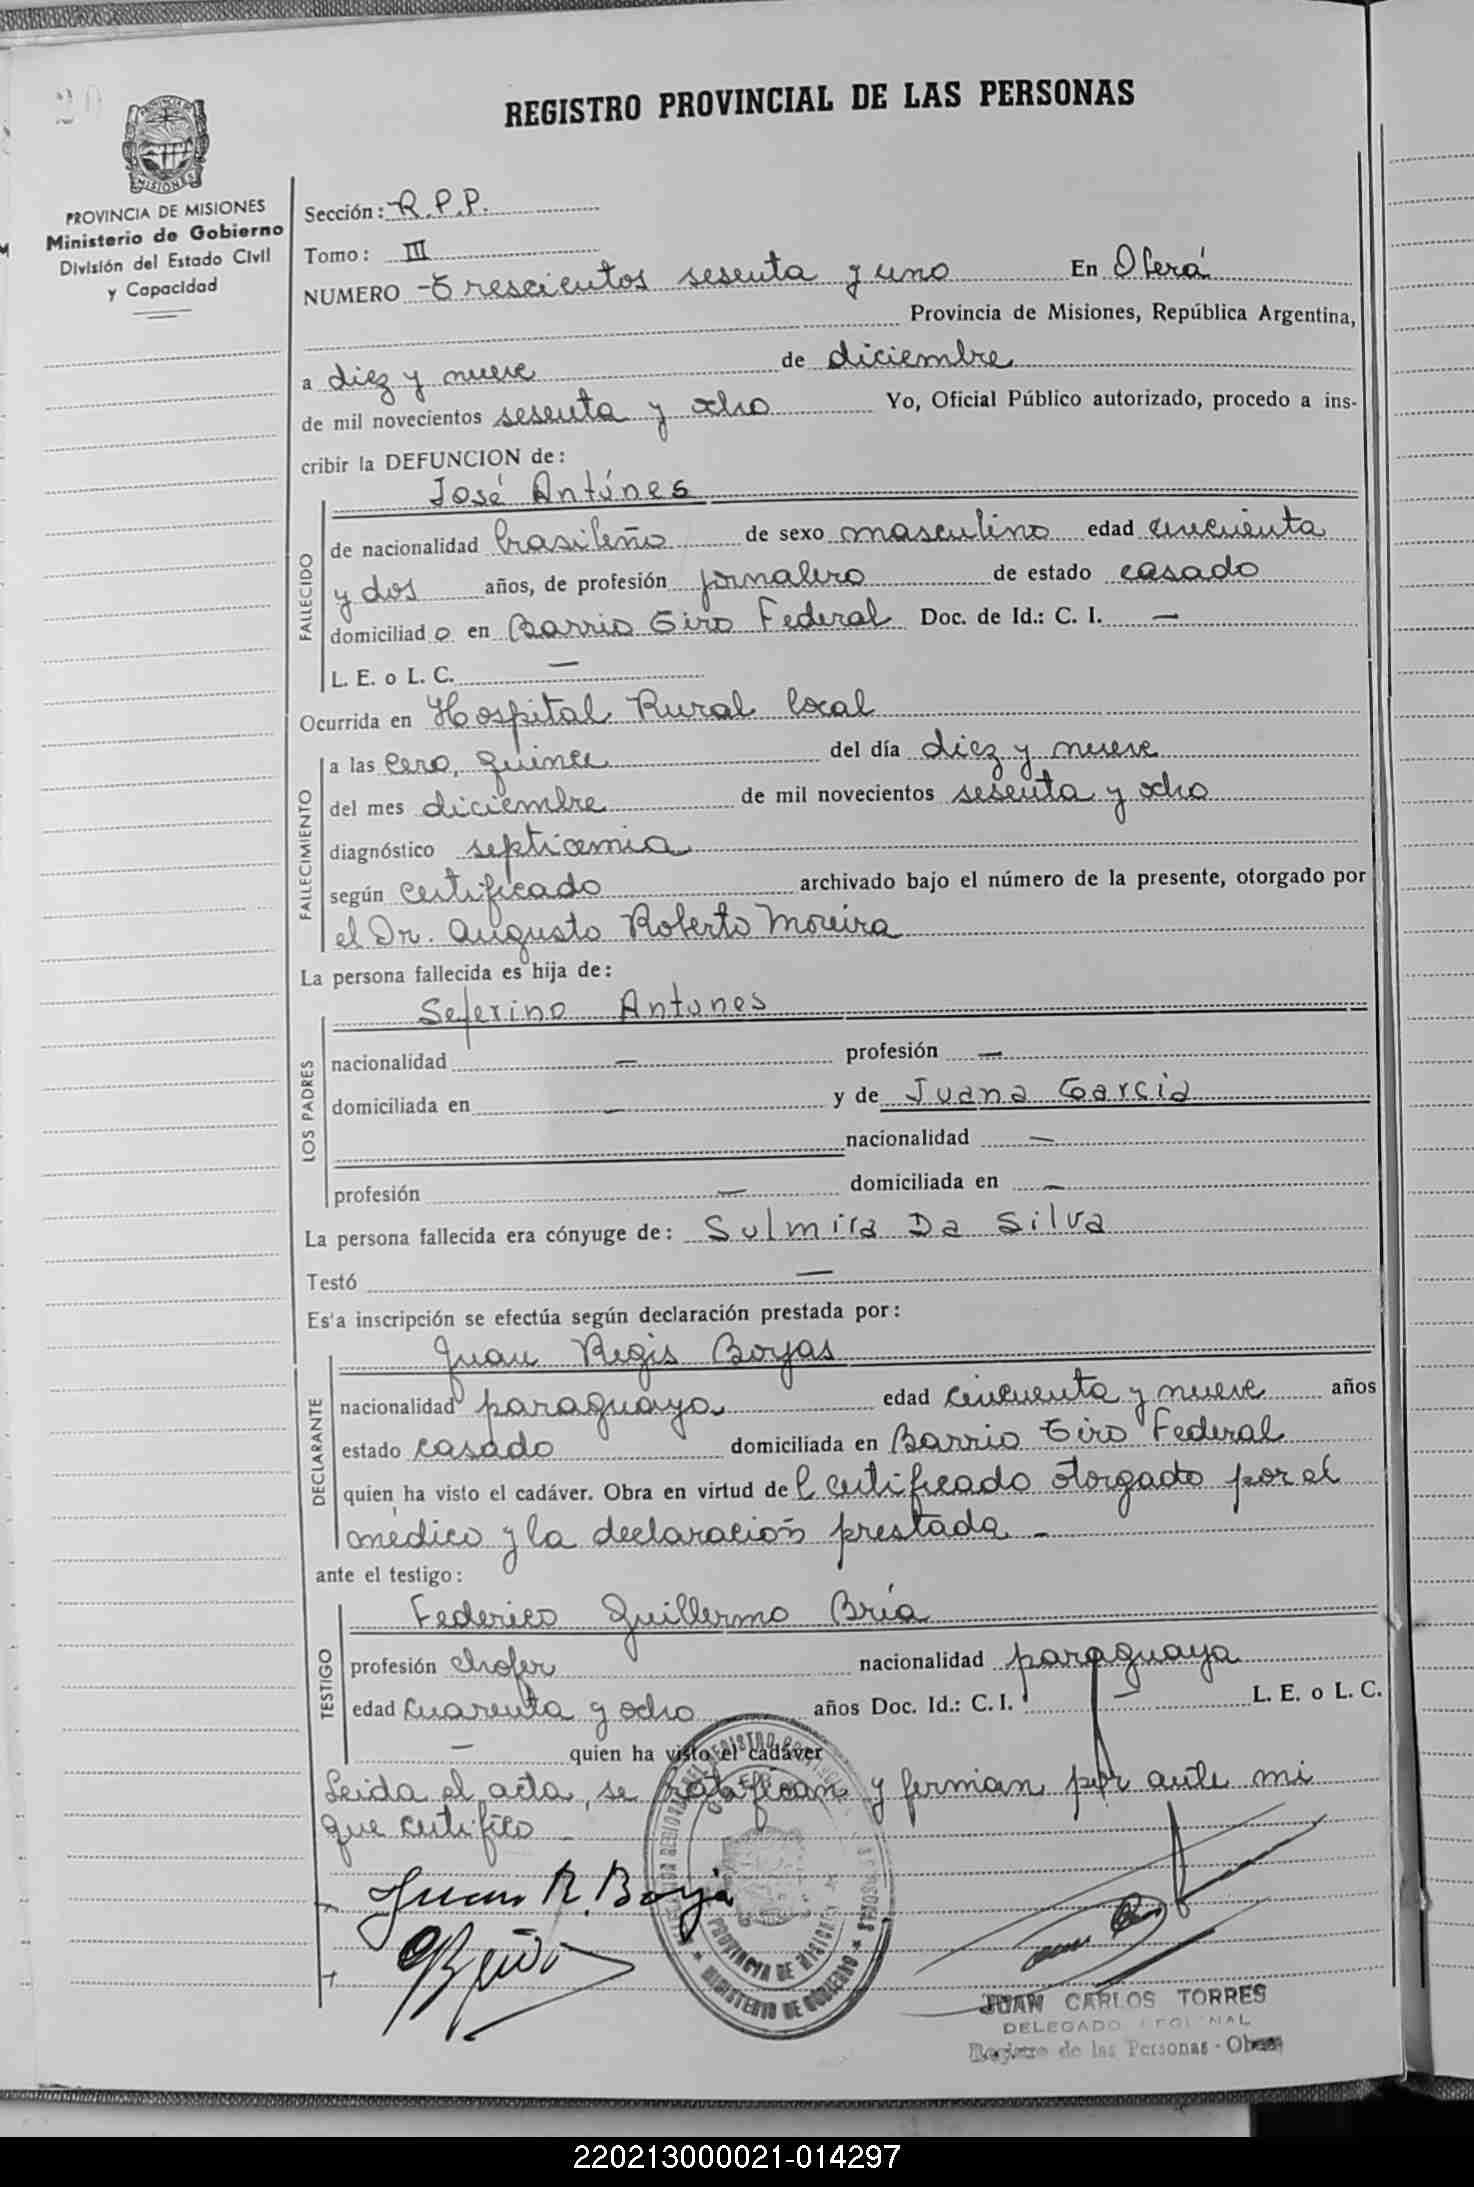 REGISTRO PROVINCIAL DE LAS PERSONAS
MISIONES
PROVINCIA DE MISIONES
Ministerio de Gobierno
División del Estado Civil
y Capacidad
Sección: R.P.P.
Tomo: III
NUMERO -Trescientos sesenta y uno En Oberá
Provincia de Misiones, República Argentina,
a diez y nueve de diciembre
de mil novecientos sesenta y ocho Yo, Oficial Público autorizado, procedo a ins-
cribir la DEFUNCION de:
José Antúnes
FALLECIDO
de nacionalidad brasileño de sexo masculino edad cincuenta
y dos años, de profesión jornalero de estado casado
domiciliado en Barrio Tiro Federal Doc. de Id.: C. I. —
L. E. o L. C. —
Ocurrida en Hospital Rural local
FALLECIMIENTO
a las cero, quince del día diez y nueve
del mes diciembre de mil novecientos sesenta y ocho
diagnóstico septicemia
según certificado archivado bajo el número de la presente, otorgado por
el Dr. Augusto Roberto Moreira
La persona fallecida es hija de:
Seferino Antunes
LOS PADRES
nacionalidad — profesión —
domiciliada en — y de Juana Garcia
nacionalidad —
profesión — domiciliada en —
La persona fallecida era cónyuge de: Sulmira Da Silva
Testó —
Es'a inscripción se efectúa según declaración prestada por:
Juan Regis Boyas
DECLARANTE
nacionalidad paraguaya edad cincuenta y nueve años
estado casado domiciliada en Barrio Tiro Federal
quien ha visto el cadáver. Obra en virtud del certificado otorgado por el
médico y la declaración prestada -
ante el testigo:
Federico Guillermo Bría
TESTIGO
profesión chofer nacionalidad paraguaya
edad cuarenta y ocho años Doc. Id.: C. I. — L. E. o L. C.
— quien ha visto el cadáver
Leida el acta, se ratifican y firman por ante mi
que certifico -
Juan R. Boya
PROVINCIA DE MISIONES
MINISTERIO DE GOBIERNO
JUAN CARLOS TORRES
DELEGADO
Registro de las Personas - Oberá
220213000021-014297